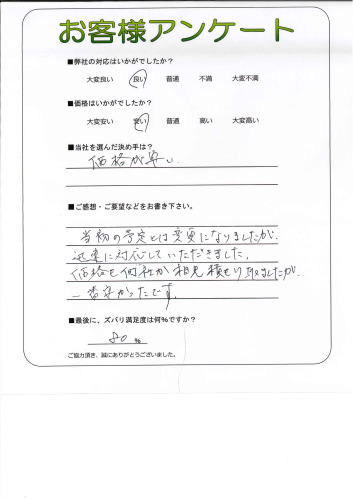 お客様アンケート
■弊社の対応はいかがでしたか?
大変良い 良い 普通 不満 大変不満
■価格はいかがでしたか?
大変安い 安い 普通 高い 大変高い
■当社を選んだ決め手は?
価格が安い
■ご感想・ご要望などをお書き下さい。
当初の予定とは変更になりましたが、
迅速に対応していただきました。
価格も何社か相見積もり取りましたが
一番安かったです。
■最後に、ズバリ満足度は何%ですか?
80 %
ご協力頂き、誠にありがとうございました。